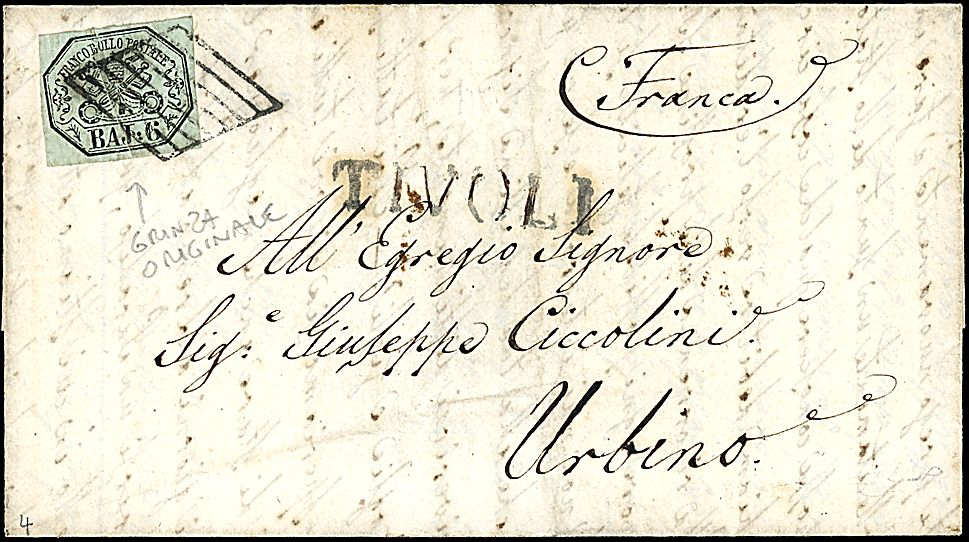 FRANCO BOLLO POSTALE
BAJ: 6
Franca.
TIVOLI
GRINZA
ORIGINALE
All' Egregio Signore
Sig.e Giuseppe Ciccolini.
Urbino.
4